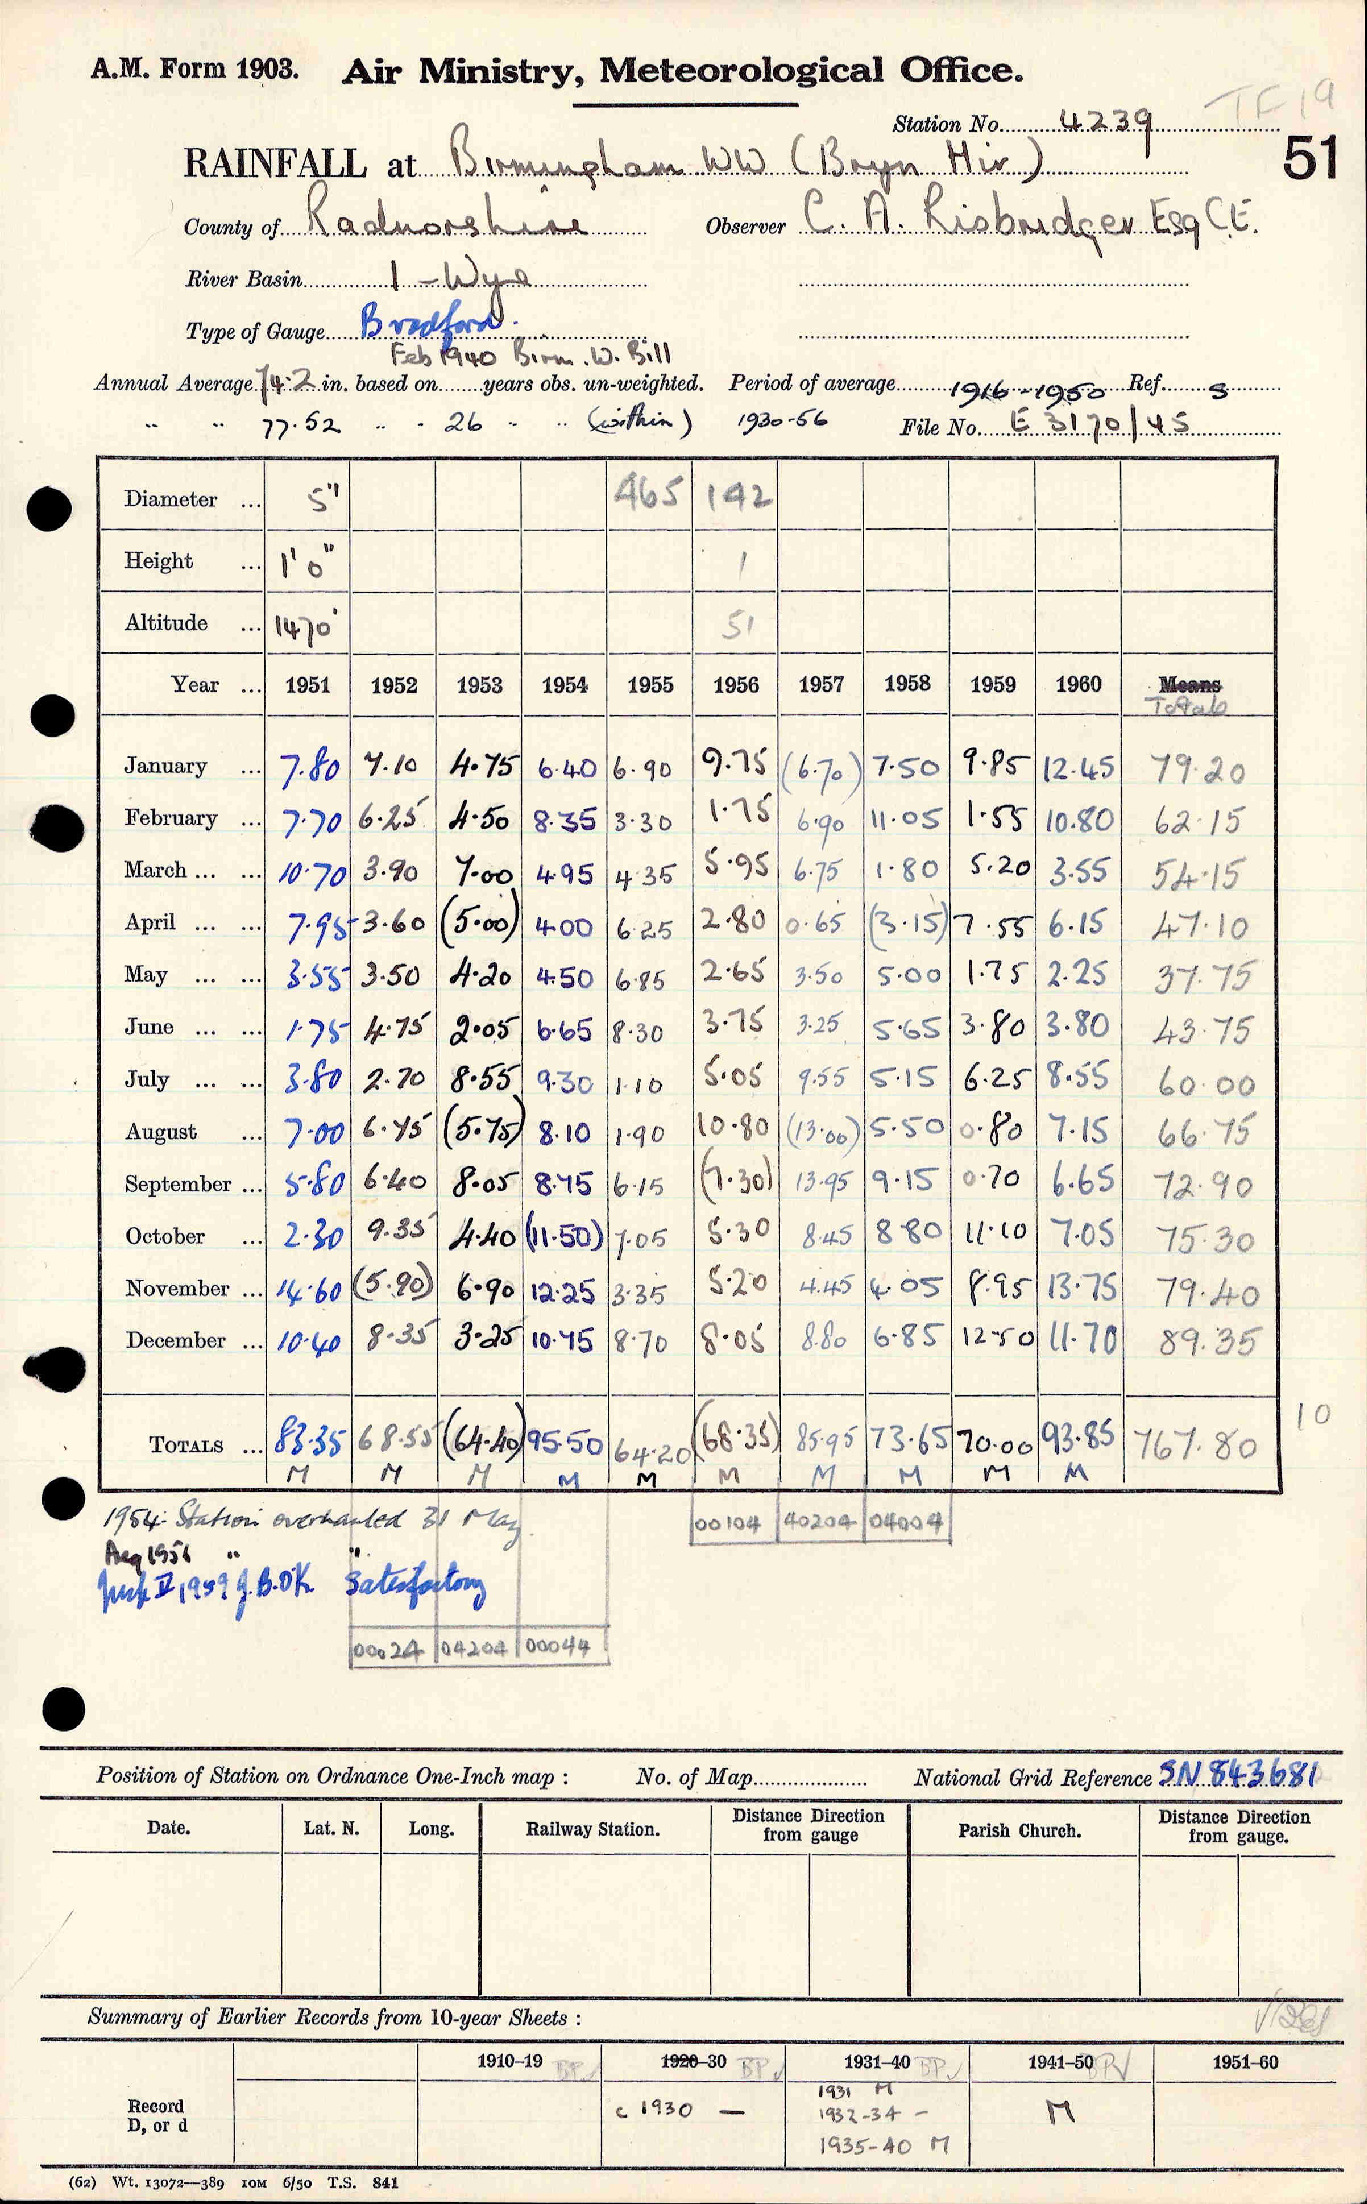 A.M. Form 1903. Air Ministry, Meteorological Office.
TF19
Station No. 4239
51
RAINFALL at Birmingham WW (Bryn Hir)
County of Radnorshire Observer C. A. Risbridger Esq C.E.
River Basin 1 - Wye
Type of Gauge Bradford.
Feb 1940 Birm. W. Bill
Annual Average 74.2 in. based on years obs. un-weighted. Period of average 1916-1950 Ref. S
" " 77.52 " " 26 " " (within) 1930-56 File No. E 3170/45
Diameter ... 5" 465 142
Height ... 1' 0" 1
Altitude ... 1470' 51
Year ... 1951 1952 1953 1954 1955 1956 1957 1958 1959 1960 Means
Totals
January ... 7.80 7.10 4.75 6.40 6.90 9.75 (6.70) 7.50 9.85 12.45 79.20
February ... 7.70 6.25 4.50 8.35 3.30 1.75 6.90 11.05 1.55 10.80 62.15
March ... ... 10.70 3.90 7.00 4.95 4.35 5.95 6.75 1.80 5.20 3.55 54.15
April ... ... 7.95 3.60 (5.00) 4.00 6.25 2.80 0.65 (3.15) 7.55 6.15 47.10
May ... ... 3.55 3.50 4.20 4.50 6.85 2.65 3.50 5.00 1.75 2.25 37.75
June ... ... 1.75 4.75 2.05 6.65 8.30 3.75 3.25 5.65 3.80 3.80 43.75
July ... ... 3.80 2.70 8.55 9.30 1.10 5.05 9.55 5.15 6.25 8.55 60.00
August ... 7.00 6.75 (5.75) 8.10 1.90 10.80 (13.00) 5.50 0.80 7.15 66.75
September ... 5.80 6.40 8.05 8.75 6.15 (7.30) 13.95 9.15 0.70 6.65 72.90
October ... 2.30 9.35 4.40 (11.50) 7.05 5.30 8.45 8.80 11.10 7.05 75.30
November ... 14.60 (5.90) 6.90 12.25 3.35 5.20 4.45 4.05 8.95 13.75 79.40
December ... 10.40 8.35 3.25 10.75 8.70 8.05 8.80 6.85 12.50 11.70 89.35
10
TOTALS ... 83.35 68.55 (64.40) 95.50 64.20 (68.35) 85.95 73.65 70.00 93.85 767.80
M M M M M M M M M M
1954: Station overhauled 31 May
00104 40204 04004
Aug 1956 " "
1959 J.B. OK Satisfactory
00024 04204 00044
Position of Station on Ordnance One-Inch map : No. of Map National Grid Reference SN 843681
Date. Lat. N. Long. Railway Station. Distance Direction from gauge Parish Church. Distance Direction from gauge.
Summary of Earlier Records from 10-year Sheets :
1910-19 BP✓ 1920-30 BP✓ 1931-40 BP✓ 1941-50 BP✓ 1951-60
Record D, or d
c 1930 —
1931 M
1932-34 -
1935-40 M
M
(62) Wt. 13072—389 10M 6/50 T.S. 841